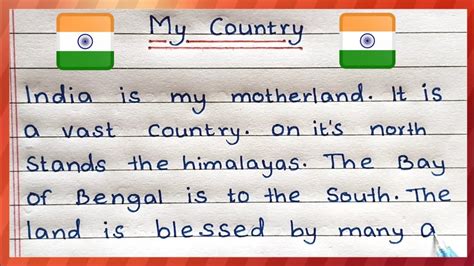 My Country
India is my motherland. It is
a vast Country. On it's north
Stands the himalayas. The Bay
of Bengal is to the South. The
land is blessed by many a